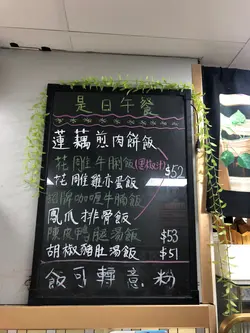 是日午餐
蓮藕煎肉餅飯
花雕牛脷飯
花雕雞亦蛋飯 $52
咖喱牛腩飯
鳳爪排骨飯
陳皮鴨腿湯飯 $53
胡椒豬肚湯飯 $51
飯可轉意粉